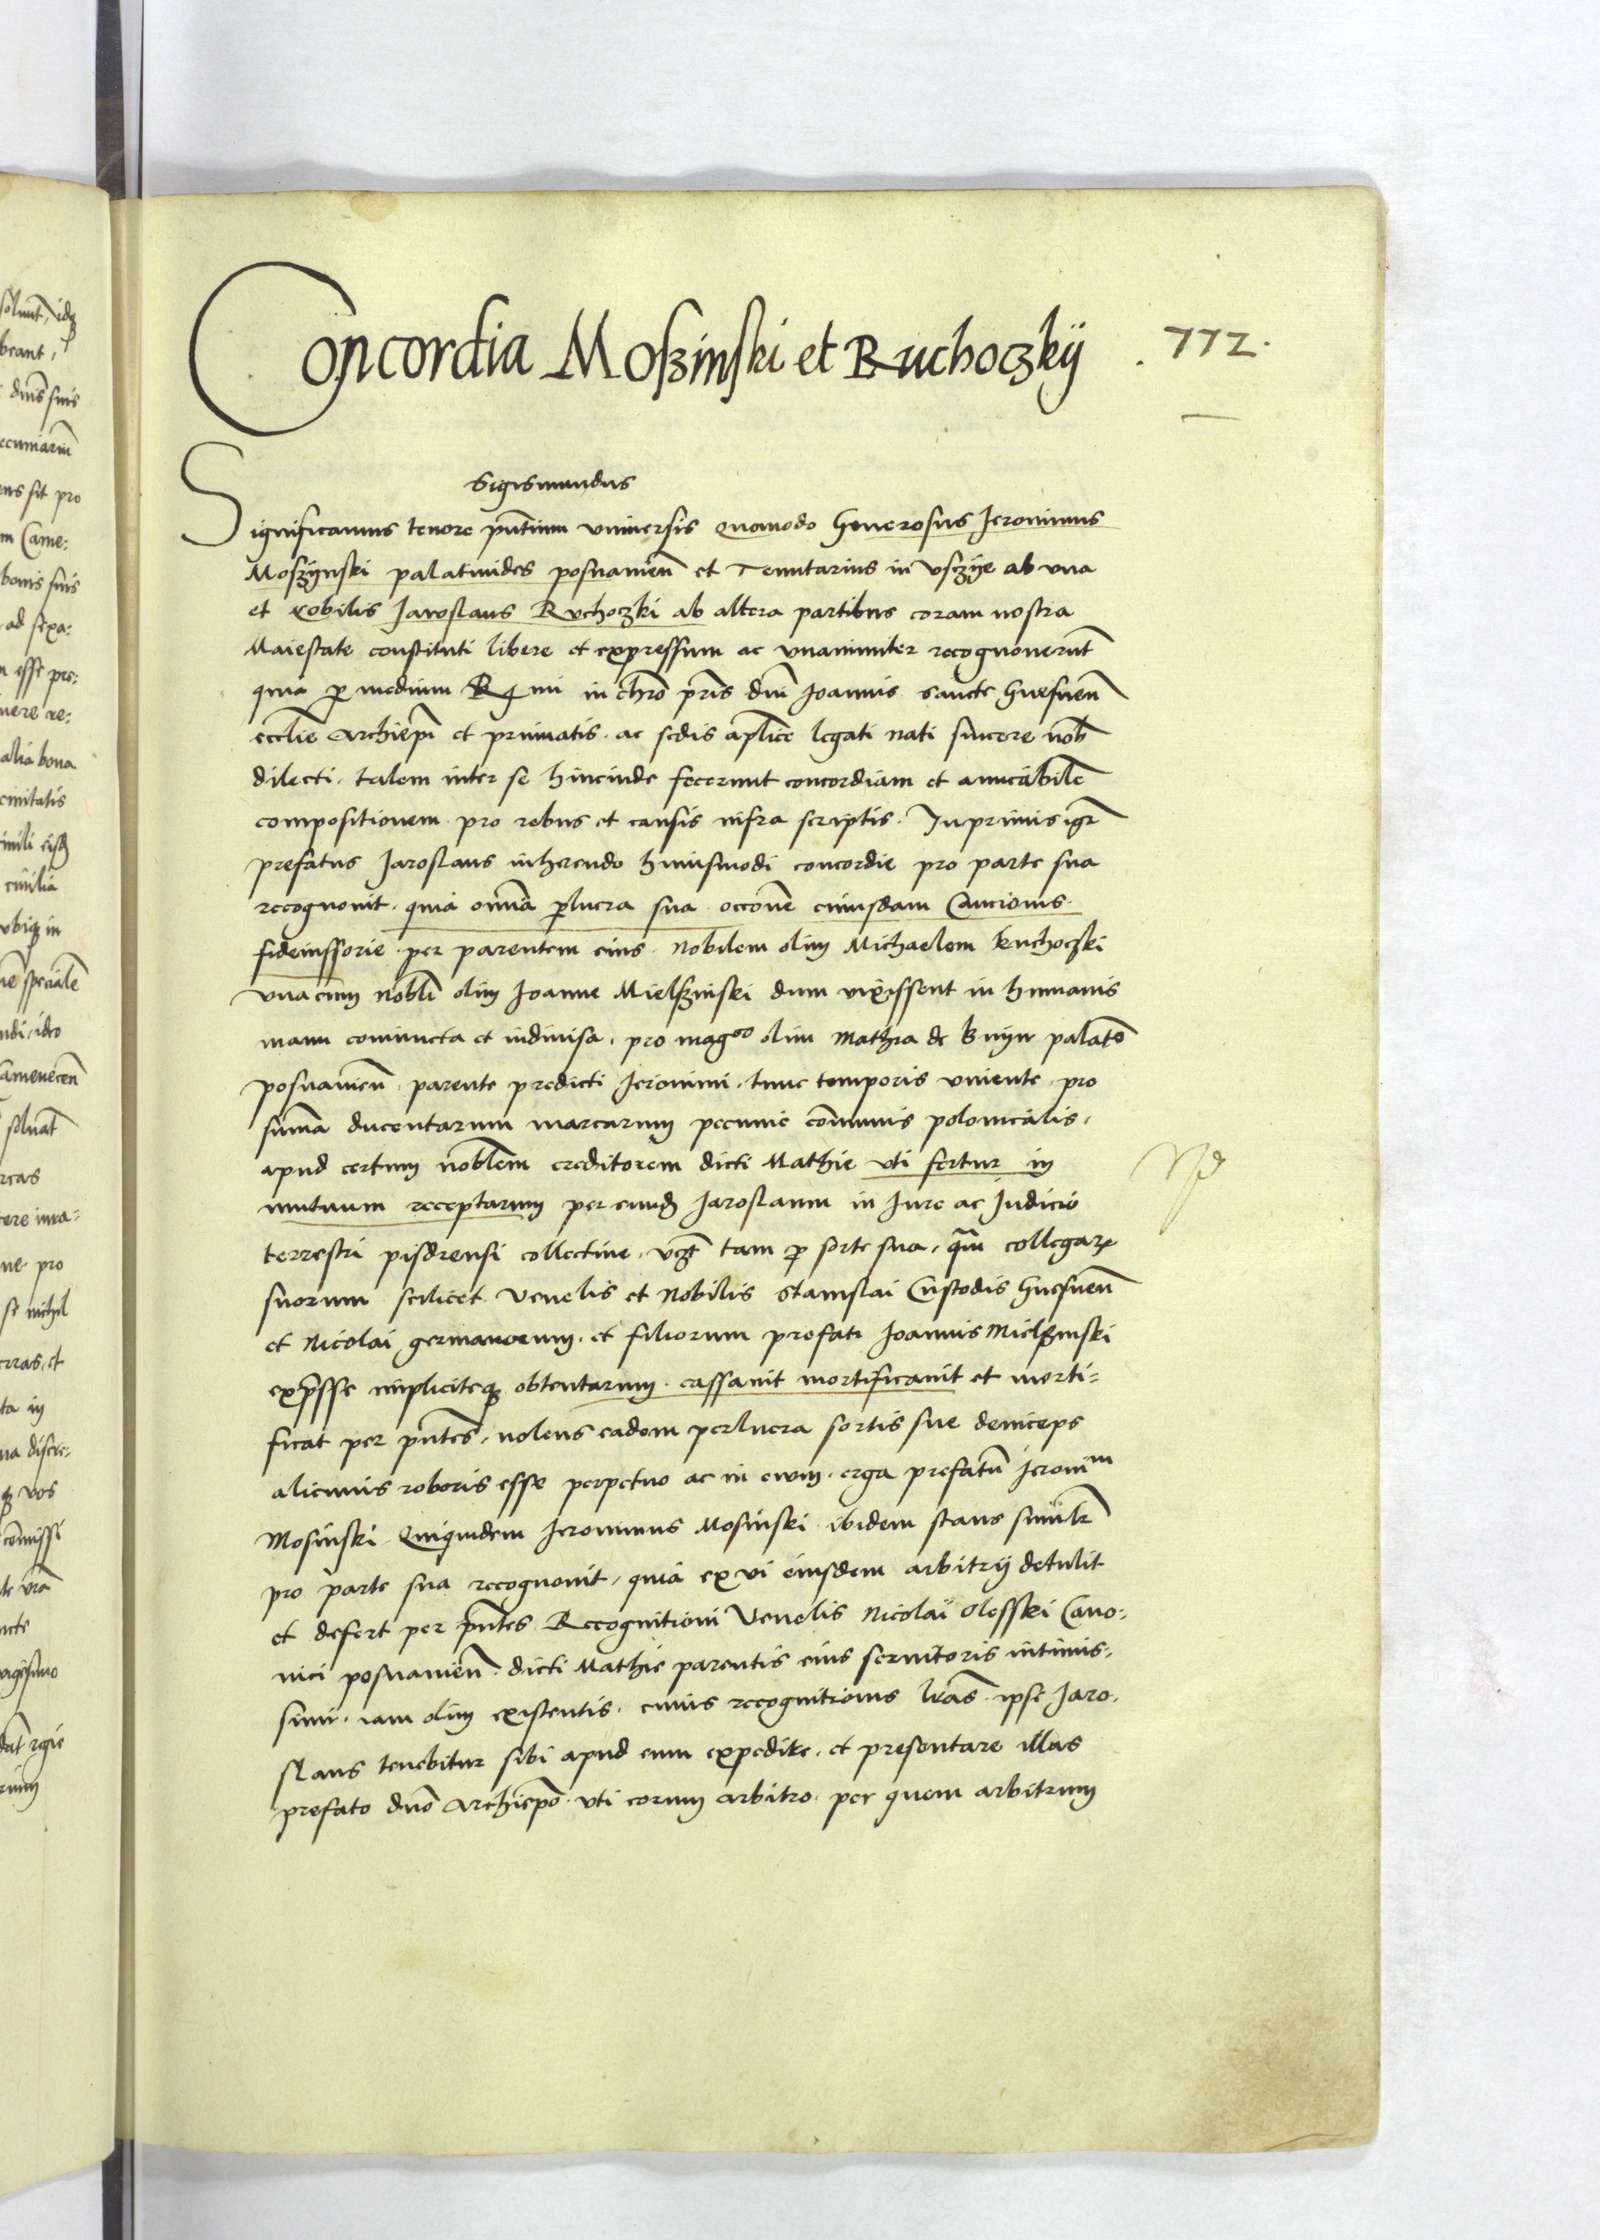 Concordia Moszinski et Ruchoczkij
772.
Sigismundus
Significamus tenore pñtium universis quomodo Generosus Jeronimus
Moszÿnski palatinides posnanien̄ et Tenutarius in Vsczÿe ab una
et Nobilis Jaroslaus Ruchoczki ab altera partibus coram nostra
Maiestate constituti libere et expressum ac unanimiter recognoverūt
quia p medium in chro p̄ris dn̄i Joannis sancte Gnesnen̄
ecclīe Archiepī et primatis ac sedis aplīce legati nati sincere nob̄
dilecti, talem inter se hincinde fecerunt concordiam et amicabilē
compositionem pro rebus et causis infra scriptis. Inprimis igr̄
prefatus Jaroslaus inherendo huiusmodi concordie pro parte sua
recognovit quia om̄ia perlucra sua occōne cuiusdam Caucionis
fideiussorie per parentem eius Nobilem olim Michaelem Ruchoczki
unacum Nobli olim Joanne Mielszinski dum vixissent in humanis
manu coniuncta et indivisa, pro mag^co olim Mathia de Bnÿn palat̄o
posnanien̄ parente predicti Jeronimi tunc temporis vivente pro
summa ducentarum marcarum pecunie cōmunis polonicalis,
apud certum noblem creditorem dicti Mathie uti fertur in
mutuum receptarum per eund̄ Jaroslaum in Jure ac Judicio
terrestri pisdrensi collective, vz tam p sorte sua, qm̄ collegar̄
suorum scilicet Venelis et Nobilis Stanislai Custodis Gnesnen̄
et Nicolai germanorum et filiorum prefati Joannis Mielszinski
exp̄sse impliciteq̄ obtentarum cassavit mortificavit et morti=
ficat per pn̄tes, nolens eadem perlucra sortis sue deinceps
alicuius roboris esse perpetuo ac in evum erga prefatū Jeronim^m
Mosinski. Quiquidem Jeronimus Mosinski ibidem stans similr̄
pro parte sua recognovit, quia ex vi eiusdem arbitrij detulit
et defert per pn̄tes Recognitioni Venelis Nicolaÿ Olesski Cano=
nici posnanien̄ dicti Mathie parentis eius servitoris intimis=
simi iam olim existentis, cuius recognitionis lr̄as ipse Jaro=
slaus tenebitur sibi apud eum expedire et presentare illas
prefato dn̄o Archiep̄o uti eorum arbitro per quem arbitrum